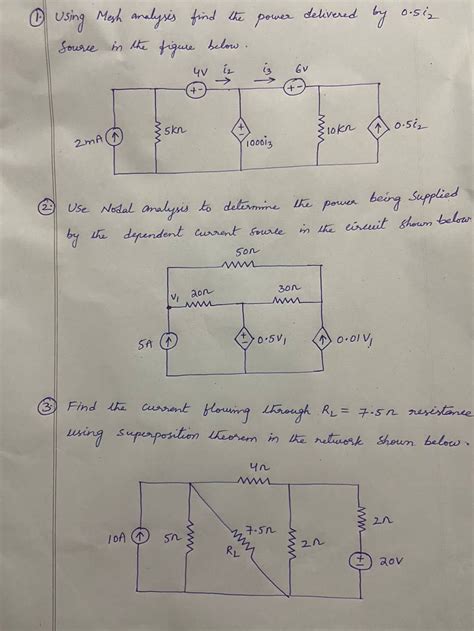 1. Using Mesh analysis find the power delivered by 0.5i2
Source in the figure below.
4V i2 i3 6V
+ - + -
2mA 5kΩ + - 1000i3 10kΩ 0.5i2
2. Use Nodal analysis to determine the power being Supplied
by the dependent current source in the circuit shown below
50Ω
V1 20Ω 30Ω
5A + - 0.5V1 0.01V1
3. Find the current flowing through RL = 7.5Ω resistance
using superposition theorem in the network shown below.
4Ω
10A 5Ω 7.5Ω RL 2Ω 2Ω
+ - 20V